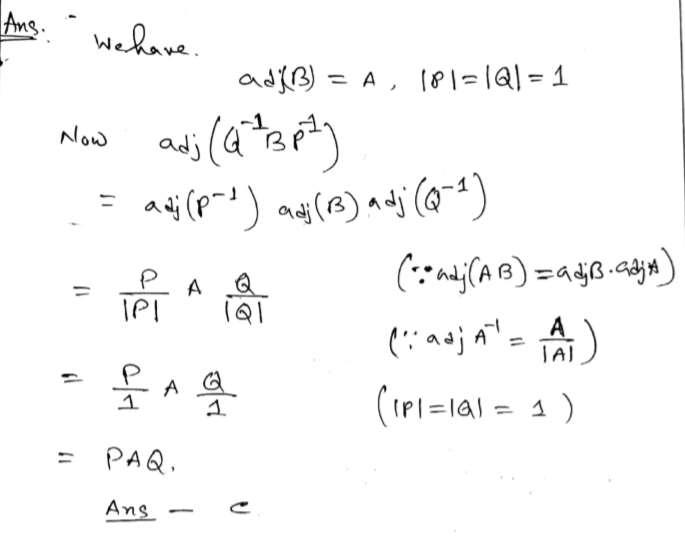 Ans. -
We have.
adj(B) = A, |P|=|Q|= 1
Now adj(Q⁻¹BP⁻¹)
= adj(P⁻¹) adj(B) adj(Q⁻¹)
= P/|P| A Q/|Q| (∵ adj(AB) = adjB. adjA)
(∵ adj A⁻¹ = A/|A|)
= P/1 A Q/1 (|P|=|Q| = 1)
= PAQ.
Ans — C